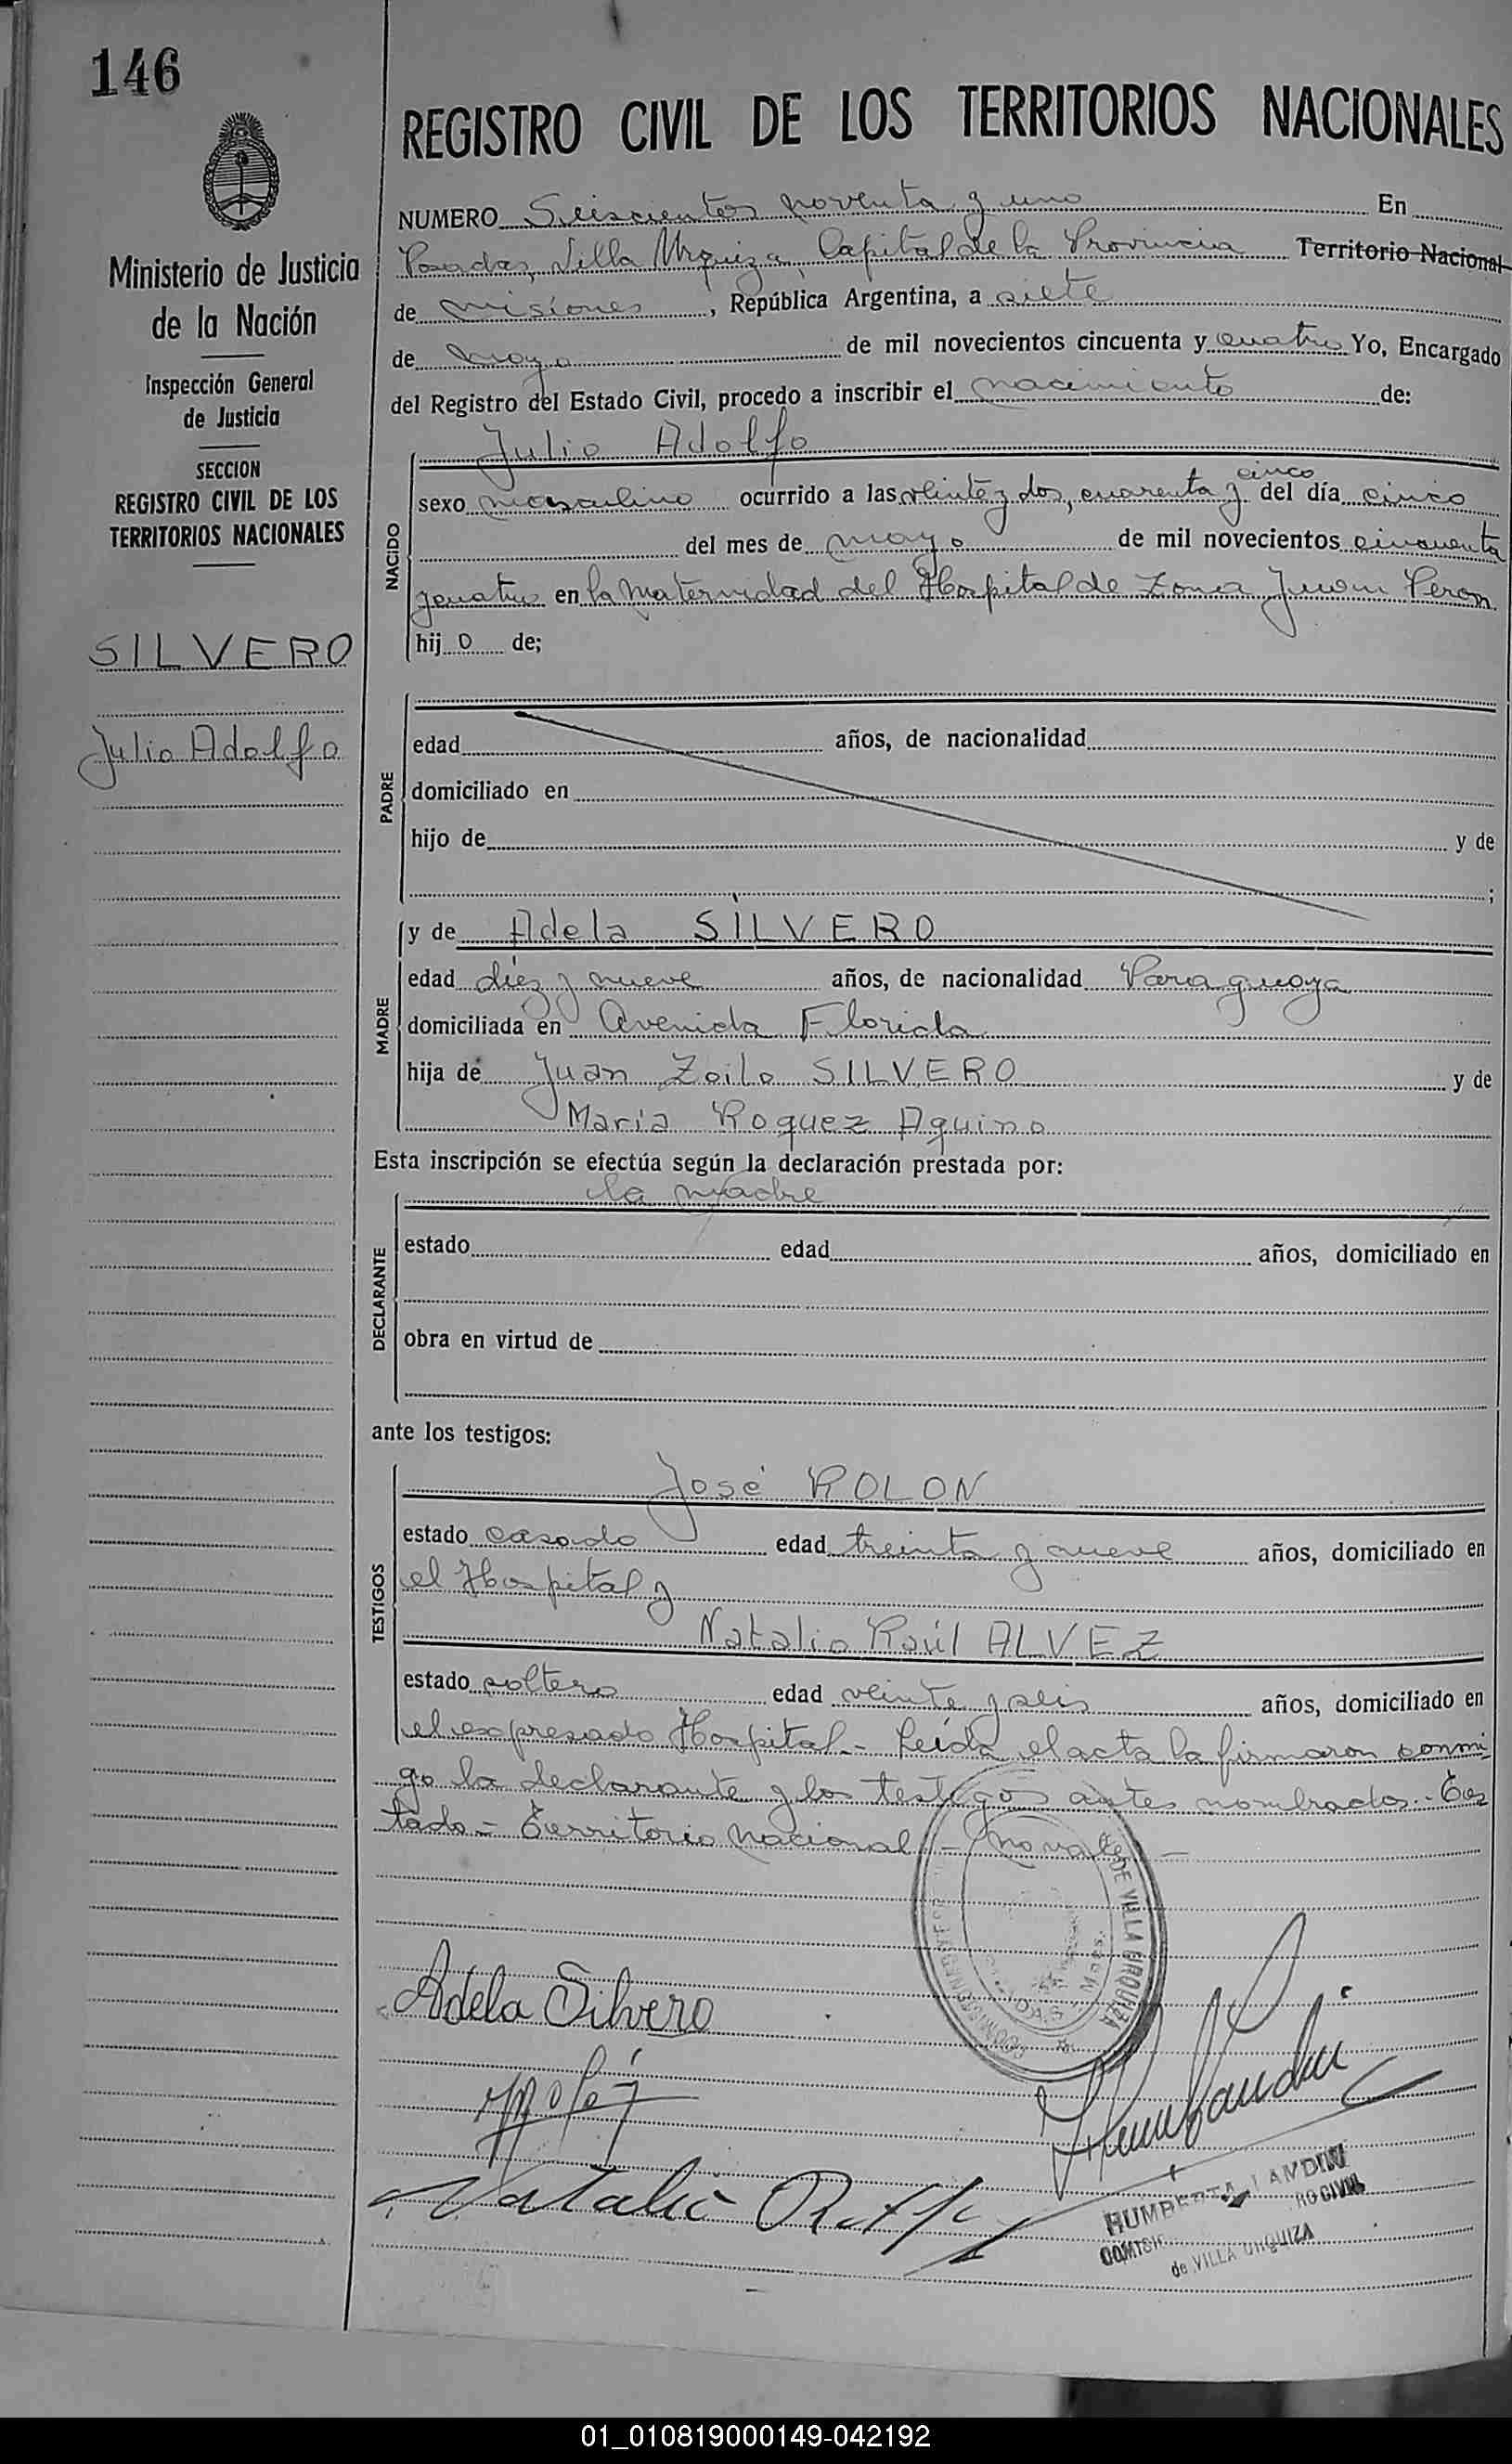 146
REGISTRO CIVIL DE LOS TERRITORIOS NACIONALES
Ministerio de Justicia
de la Nación
Inspección General
de Justicia
SECCION
REGISTRO CIVIL DE LOS
TERRITORIOS NACIONALES
SILVERO
Julio Adolfo
NUMERO Seiscientos noventa y uno En
Posadas, Villa Urquiza, Capital de la Provincia Territorio Nacional
de misiones, República Argentina, a siete
de mayo de mil novecientos cincuenta y cuatro Yo, Encargado
del Registro del Estado Civil, procedo a inscribir el nacimiento de:
Julio Adolfo
NACIDO
cinco
sexo masculino ocurrido a las veinte y dos, cuarenta y del día cinco
del mes de mayo de mil novecientos cincuenta
y cuatro en la Maternidad del Hospital de Zona Juan Peron
hij o de;
PADRE
edad años, de nacionalidad
domiciliado en
hijo de y de
;
MADRE
y de Adela SILVERO
edad diez y nueve años, de nacionalidad Paraguaya
domiciliada en Avenida Florida
hija de Juan Zoilo SILVERO y de
María Roquez Aquino
Esta inscripción se efectúa según la declaración prestada por:
la madre
DECLARANTE
estado edad años, domiciliado en
obra en virtud de
ante los testigos:
TESTIGOS
José ROLON
estado casado edad treinta y nueve años, domiciliado en
el Hospital y
Natalio Raúl ALVEZ
estado soltero edad veinte y seis años, domiciliado en
el expresado Hospital.- Leída el acta la firmaron conmi
go la declarante y los testigos antes nombrados.- Tes
tado - Territorio Nacional - no vale -
DE VILLA URQUIZA
Adela Silvero
Natalio
HUMBERTA LANDINI
de VILLA URQUIZA
01_010819000149-042192